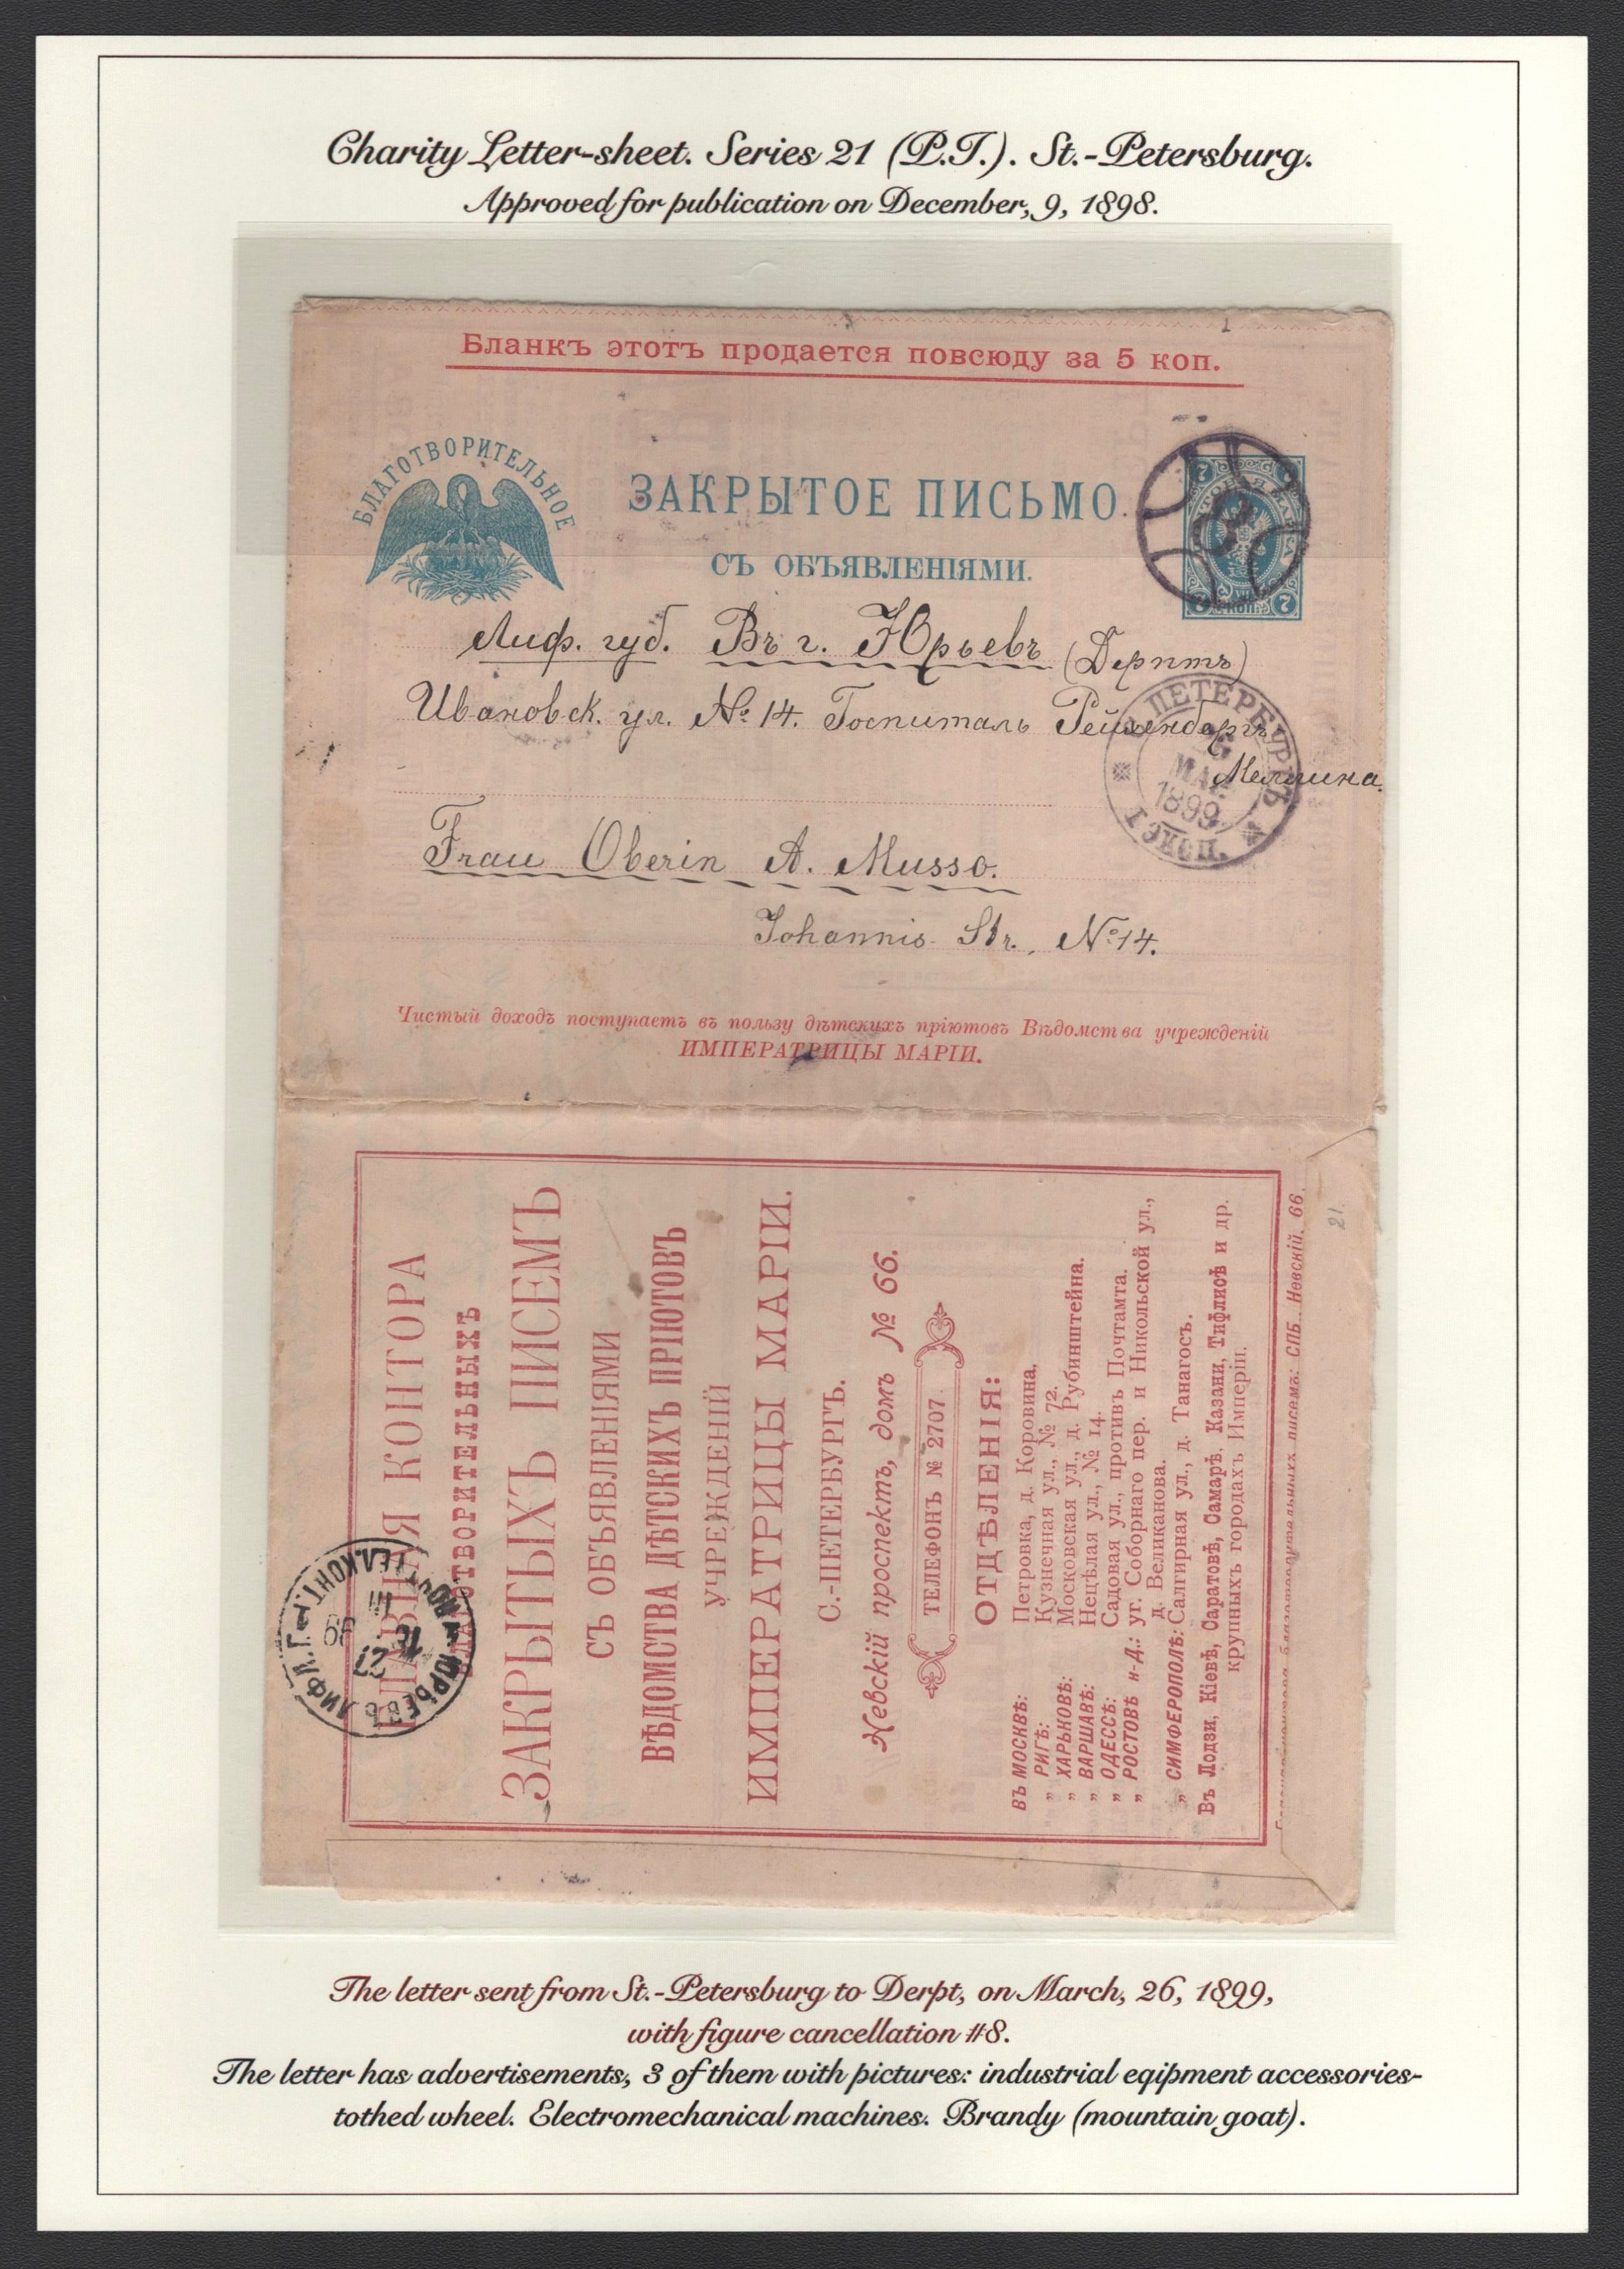 Charity Letter-sheet. Series 21 (P.T.). St.-Petersburg.
Approved for publication on December, 9, 1898.
Бланкъ этотъ продается повсюду за 5 коп.
БЛАГОТВОРИТЕЛЬНОЕ
ЗАКРЫТОЕ ПИСЬМО.
СЪ ОБЪЯВЛЕНІЯМИ.
7 7
7
Лиф. губ. Въ г. Юрьевъ (Дерптъ)
Ивановск. ул. № 14. Госпиталь
С. ПЕТЕРБУРГЪ
МАР
1899
Frau Oberin A. Musso.
Johannis Str., № 14.
Чистый доходъ поступаетъ въ пользу дѣтскихъ пріютовъ Вѣдомства учрежденій
ИМПЕРАТРИЦЫ МАРІИ.
ГЛАВНАЯ КОНТОРА
БЛАГОТВОРИТЕЛЬНЫХЪ
ЗАКРЫТЫХЪ ПИСЕМЪ
СЪ ОБЪЯВЛЕНІЯМИ
ВѢДОМСТВА ДѢТСКИХЪ ПРІЮТОВЪ
УЧРЕЖДЕНІЙ
ИМПЕРАТРИЦЫ МАРІИ.
С.-ПЕТЕРБУРГЪ.
Невскій проспектъ, домъ № 66.
ТЕЛЕФОНЪ № 2707
ОТДѢЛЕНІЯ:
ВЪ МОСКВѢ: Петровка, д. Коровина,
„ РИГѢ: Кузнечная ул., № 72.
„ ХАРЬКОВѢ: Московская ул., д. Рубинштейна.
„ ВАРШАВѢ: Нецѣлая ул., № 14.
„ ОДЕССѢ: Садовая ул., противъ Почтамта.
„ РОСТОВѢ н-Д.: уг. Соборнаго пер. и Никольской ул.,
д. Великанова.
„ СИМФЕРОПОЛѢ: Салгирная ул., д. Танагосъ.
Въ Лодзи, Кіевѣ, Саратовѣ, Самарѣ, Казани, Тифлисѣ и др.
крупныхъ городахъ Имперіи.
благотворительныхъ писемъ: СПБ. Невскій, 66.
21.
ЮРЬЕВЪ ЛИФЛ. Г.
27
III
99
The letter sent from St.-Petersburg to Derpt, on March, 26, 1899,
with figure cancellation #8.
The letter has advertisements, 3 of them with pictures: industrial eqipment accessories-
tothed wheel. Electromechanical machines. Brandy (mountain goat).